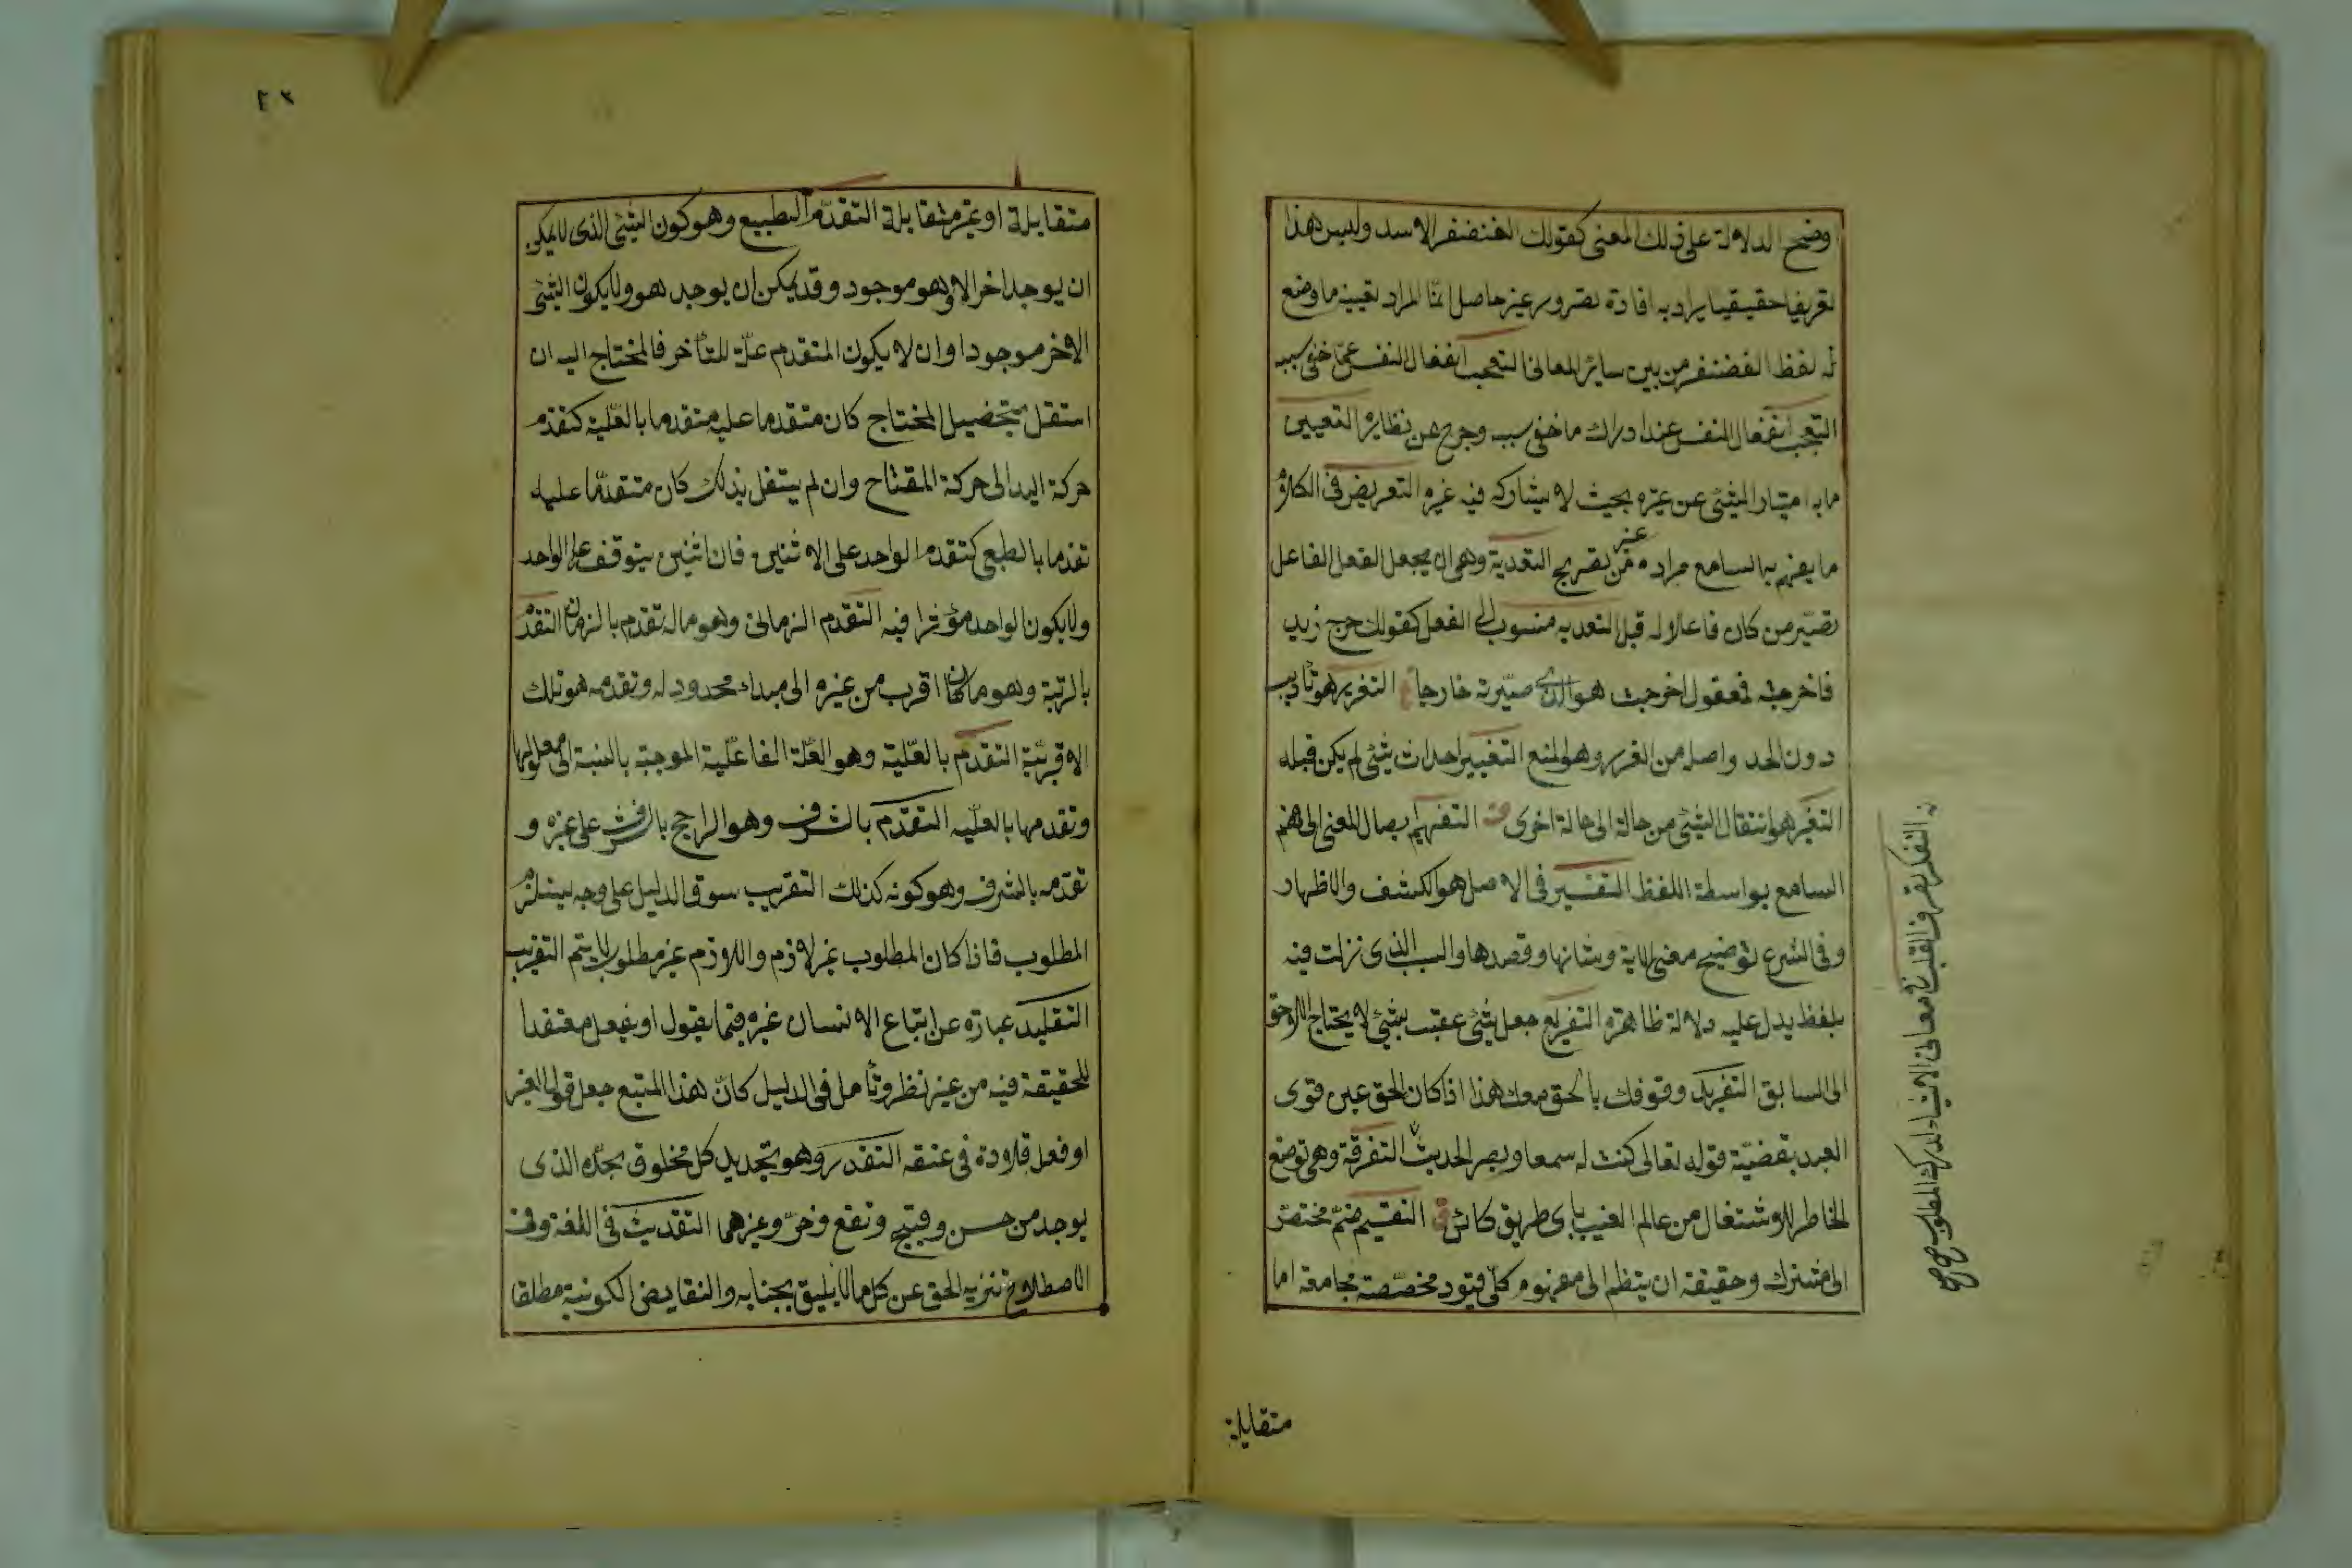 وضح الدلالة على ذلك المعنى كقولك الغضنفر الاسد وليس هذا
تعريفا حقيقيا يراد به افادة تصور غير حاصل انما المراد تعيين ما وضع
له لفظ الغضنفر من بين سائر المعانى التعجب انفعال النفس عما خفى سببه
التعجب انفعال النفس عند ادراك ما خفى سببه وخرج عن نظايره التعيين
ما به امتياز الشئ عن غيره بحيث لا يشاركه فيه غيره التعريض فى الكلام
ما يفهم به السامع مراده من غير تصريح التعدية وهى ان يجعل الفعل لفاعل
تصير من كان فاعلا له قبل التعديه منسوب الى الفعل كقولك خرج زيد
فاخرجته فمفعول اخرجت هو الذى صيرته خارجا غ التعزير هو تاديب
دون الحد واصله من العزر وهو المنع التغيير احداث شئ لم يكن قبله
التغير هو انتقال الشئ من حالة الى حالة اخرى ف التفهيم ايصال المعنى الى فهم
السامع بواسطة اللفظ التفسير فى الاصل هو الكشف والاظهار
وفى الشرع توضيح معنى الاية وشانها وقصدها والسبب الذى نزلت فيه
بلفظ يدل عليه دلالة ظاهرة التفريع جعل شئ عقيب شئ لا يحتاج اللاحق
الى السابق التفريد وقوفك بالحق معك هذا اذا كان الحق عين قوى
العبد بقضية قوله تعالى كنت له سمعا وبصر الحديث التفرقة وهى توضع
الخاطر للاشتغال من عالم الغيب باى طريق كان ق التقسيم ضم مختص
الى مشترك وحقيقته ان ينظم الى مفهوم كلى قيود مخصصة مجامعة اما
التفكر تصرف القلب فى معانى الاشياء لدرك المطلوب صح صح
متقابلة
٢٣
متقابلة او غير متقابلة التقدم الطبيع وهو كون الشئ الذى لا يمكن
ان يوجد اخر الا وهو موجود وقد يمكن ان يوجد هو ولا يكون الشئ
الاخر موجودا وان لا يكون المتقدم علة للتأخر فالمحتاج اليه ان
استقل بتحصيل المحتاج كان متقدما عليه متقدما بالعلية كتقدم
حركة اليد الى حركة المفتاح وان لم يستقل بذلك كان متقدما عليه
تقدما بالطبع كتقدم الواحد على الاثنين فان اثنين يتوقف على الواحد
ولا يكون الواحد مؤثرا فيه التقدم الزمانى وهو ماله تقدم بالزمان التقدم
بالرتبة وهو ما كان اقرب من غيره الى مبداء محدود له وتقدمه هو تلك
الاقربية التقدم بالعلية وهو العلة الفاعلية الموجبة بالنسبة الى معلولها
وتقدمها بالعليه التقدم بالشرف وهو الراجح بالشرف على غيره و
تقدمه بالشرف وهو كونه كذلك التقريب سوق الدليل على وجه يستلزم
المطلوب فاذا كان المطلوب غير لازم واللازم غير مطلوب لا يتم التقريب
التقليد عبارة عن اتباع الانسان غيره فيما يقول او يفعل معتقدا
للحقيقة فيه من غير نظر وتأمل فى الدليل كان هذا المتبع جعل قول الغير
او فعل قلادة فى عنقه التقدير وهو تحديد كل مخلوق بحده الذى
يوجد من حسن وقبح ونفع وضر وغيرهما التقديس فى اللغة وفى
الاصطلاح تنزيه الحق عن كل ما لا يليق بجنابه والنقايض الكونية مطلقا